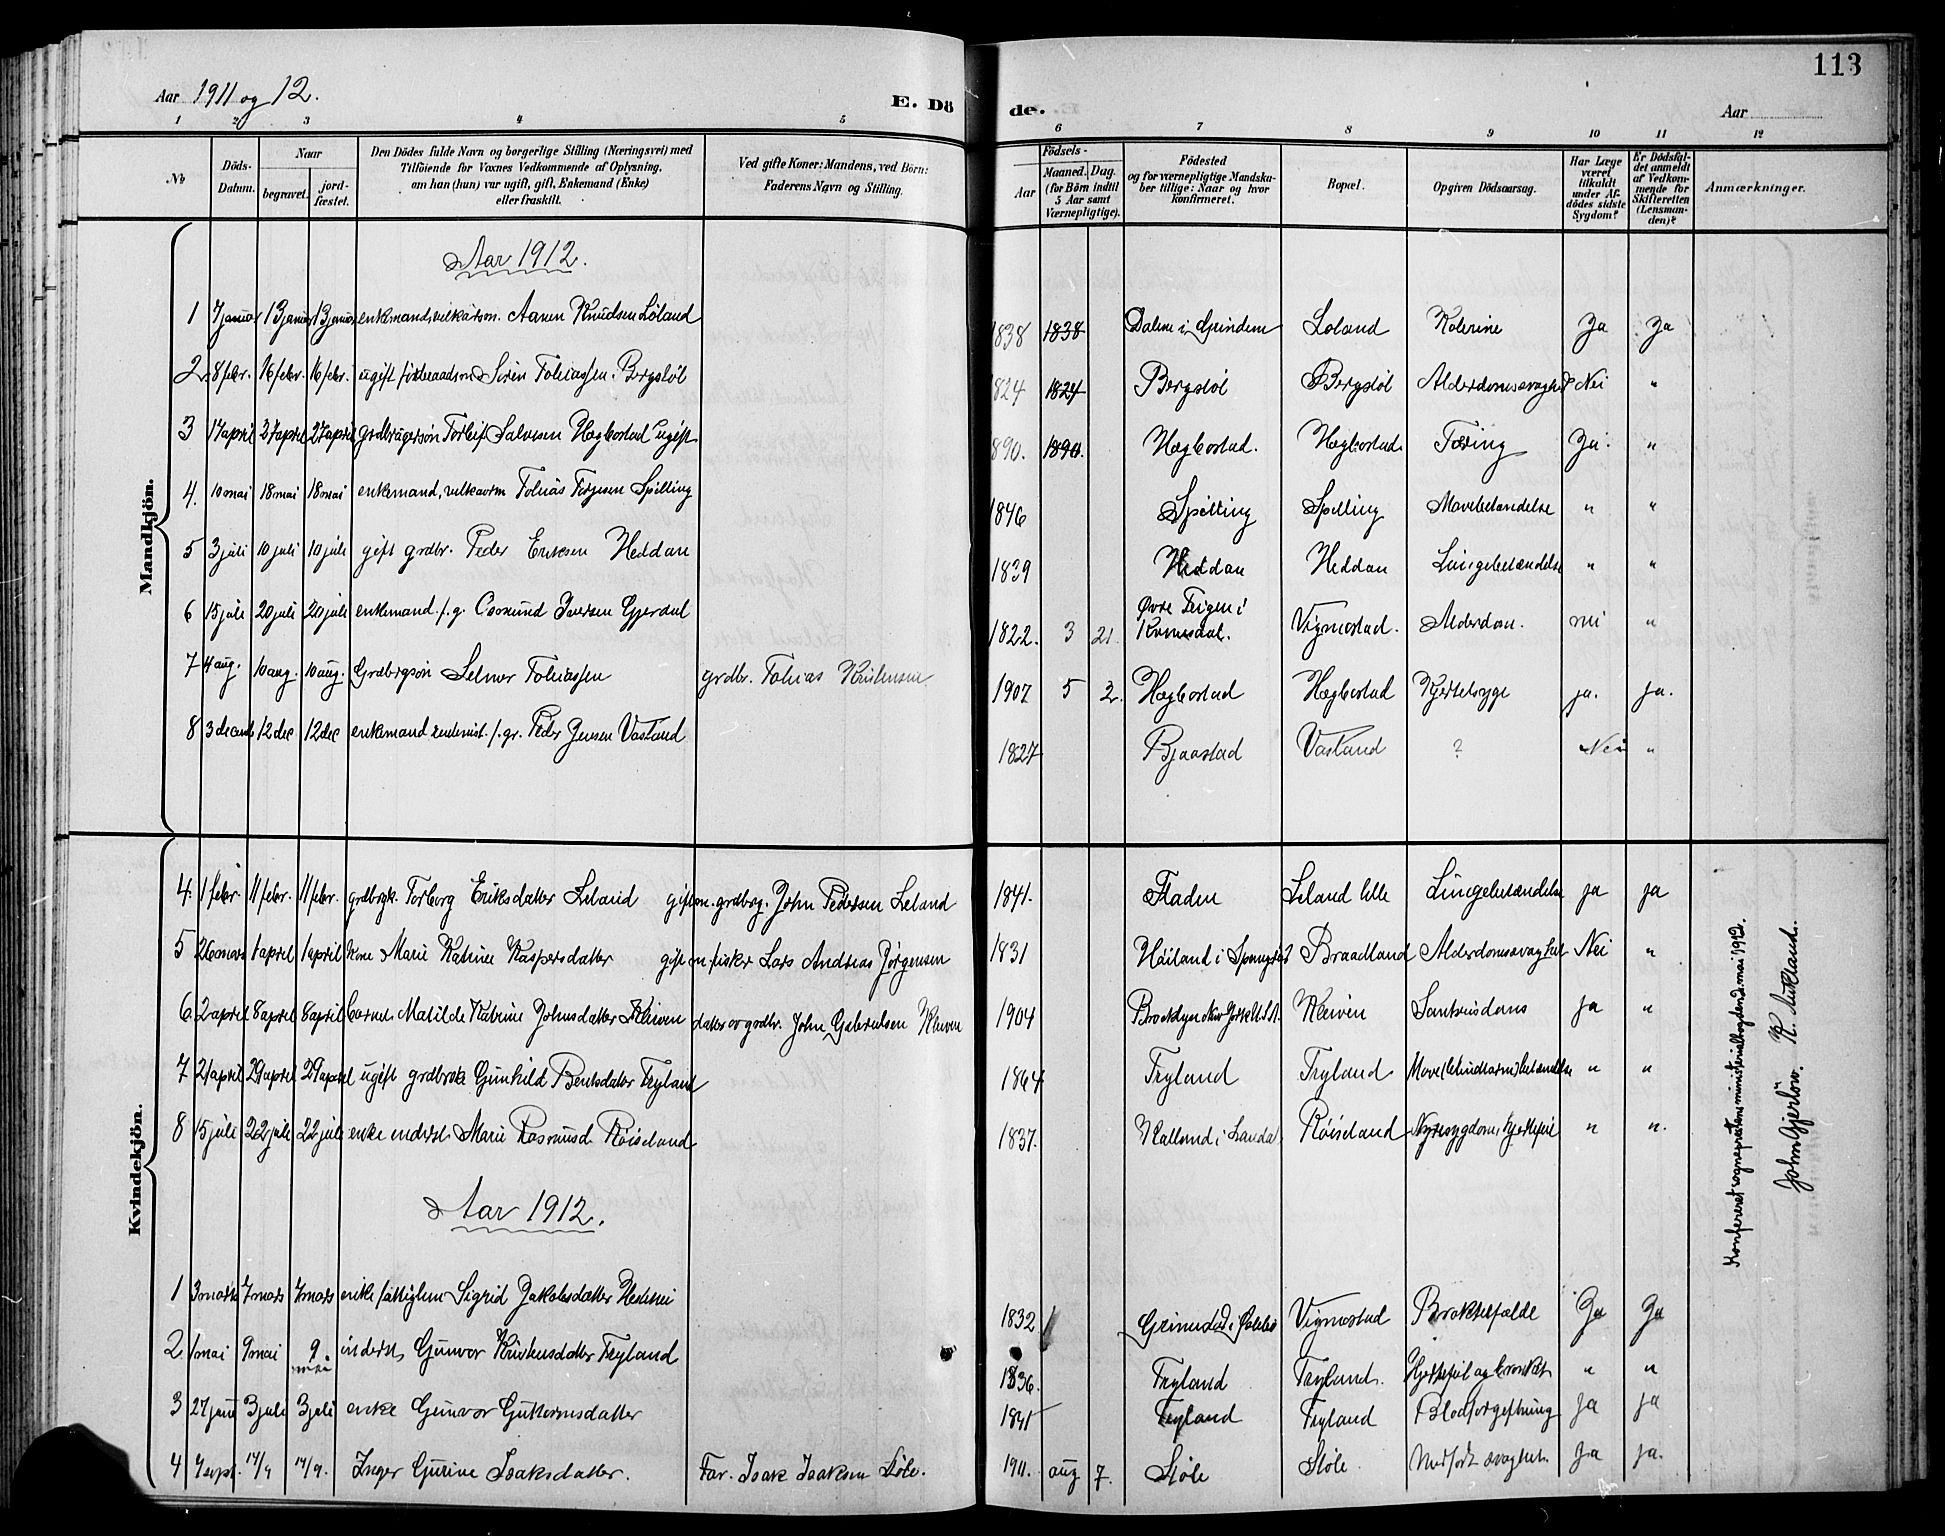 113
Aar 1911 og 12.
E. Dö
de.
Aar
1 2 3 4 5 6 7 8 9 10 11 12
No
Döds-Datum.
Naar
begravet.
jord-fæstet.
Den Dödes fulde Navn og borgerlige Stilling (Næringsvei) med
Tilföiende for Voxnes Vedkommende af Oplysning,
om han (hun) var ugift, gift, Enkemand (Enke)
eller fraskilt.
Ved gifte Koner: Mandens, ved Börn:
Faderens Navn og Stilling.
Födsels-
Aar
Maaned. Dag.
(for Börn indtil
5 Aar samt
Værnepligtige).
Födested
og for værnepligtige Mandska-
ber tillige: Naar og hvor
konfirmeret.
Bopæl.
Opgiven Dödsaarsag.
Har Læge
været
tilkaldt
under Af-
dödes sidste
Sygdom?
Er Dödsfal-
det anmeldt
af Vedkom-
mende for
Skifteretten
(Lensman-
den)?
Anmærkninger.
Mandkjön.
Aar 1912.
1 7 januar 13 januar 13 januar enkemand, Aanen Knudsen Løland 1838 1838 Dalene i Grindem Løland Kolerine Ja Ja
2. 8 febr. 16 febr. 16 febr. ugift Sören Tobiassen Bergstöl 1824 1824 Bergstöl Bergstöl Alderdomssvaghed Nei "
3 17 april 27 april 27 april grdbrugersön Torleif Salvesen Hægbostad ugift 1890. 1890. Hægbostad. Hægbostad. Tæring Ja "
4. 10 mai 18 mai 18 mai enkemand, Tobias Terjesen Spilling 1846 Spilling Spilling Mavebetændelse " "
5 3 juli 10 juli 10 juli gift grdbr. Peder Eriksen Heddan 1839 Heddan Heddan Lungebetændelse " "
6 15 juli 20 juli 20 juli enkemand. f. g. Osmund Iversen Gjerdal 1822. 3 21. Øvre Egeli Kvinesdal. Vigmostad. Alderdom. nei "
7 4 aug. 10 aug. 10 aug. Grdbrgsön Selmer Tobiassen grdbr. Tobias Kristensen 1907 5 2. Hægbostad Hægbostad Kjertelsyge ja. ja.
8 3 decemb 12 dec 12 dec enkemand f. gr. Peder Jensen Vasland 1827 Bjaastad Vasland ? Nei "
Kvindekjön.
4. 1 febr. 11 febr. 11 febr. grdbrgk. Torborg Eriksdatter Leland gift m. grdbrg. John Pedersen Leland 1841. Fladen Leland lille Lungebetændelse ja ja
5 26 mars 1 april 1 april kone Marie Katrine Kaspersdatter gift m. fisker Lars Andreas Jørgensen 1831 Höiland i Spangreid Braadland Alderdomssvaghed Nei "
6 2 april 8 april 8 april barnet Matilde Katrine Johnsdatter Kleiven datter av grdbr. John Gabrielsen Kleiven 1904 Brooklyn New York U.S.A. Kleiven Sanktveitsdans ja "
7 21 april 29 april 29 april ugift Gunhild Bentsdatter Tryland 1864 Tryland Tryland Mave(blindtarm)betændelse " "
8 15 juli 22 juli 22 juli enke Marie Rasmusd. Röiseland 1837. Halland i Landal Röiseland Nyresygdom, Hjertefeil " "
Aar 1912.
1 3 mars 7 mars 7 mars enke Sigrid Jakobsdatter 1832 Grimstad i Vigmostad Ja Ja
2 1 mai 9 mai 9 mai Gunvor Kristensdatter Tryland 1836. Tryland Tryland. Hjertefeil og bronkit " "
3 27 juni 3 juli 3 juli enke Gunvor Guttormsdatter 1841 Tryland Tryland Blodforgiftning Ja Ja
4 7 sept. 14/9 14/9. Inger Gurine Isaksdatter. Far. Isak Isaksen Støle. 1911. aug 7. Støle Støle. Medfødt svaghet. Ja Ja.
Konfereret sogneprestens ministerialbog den mai 1912.
John Gjerløw. K. Aukland.